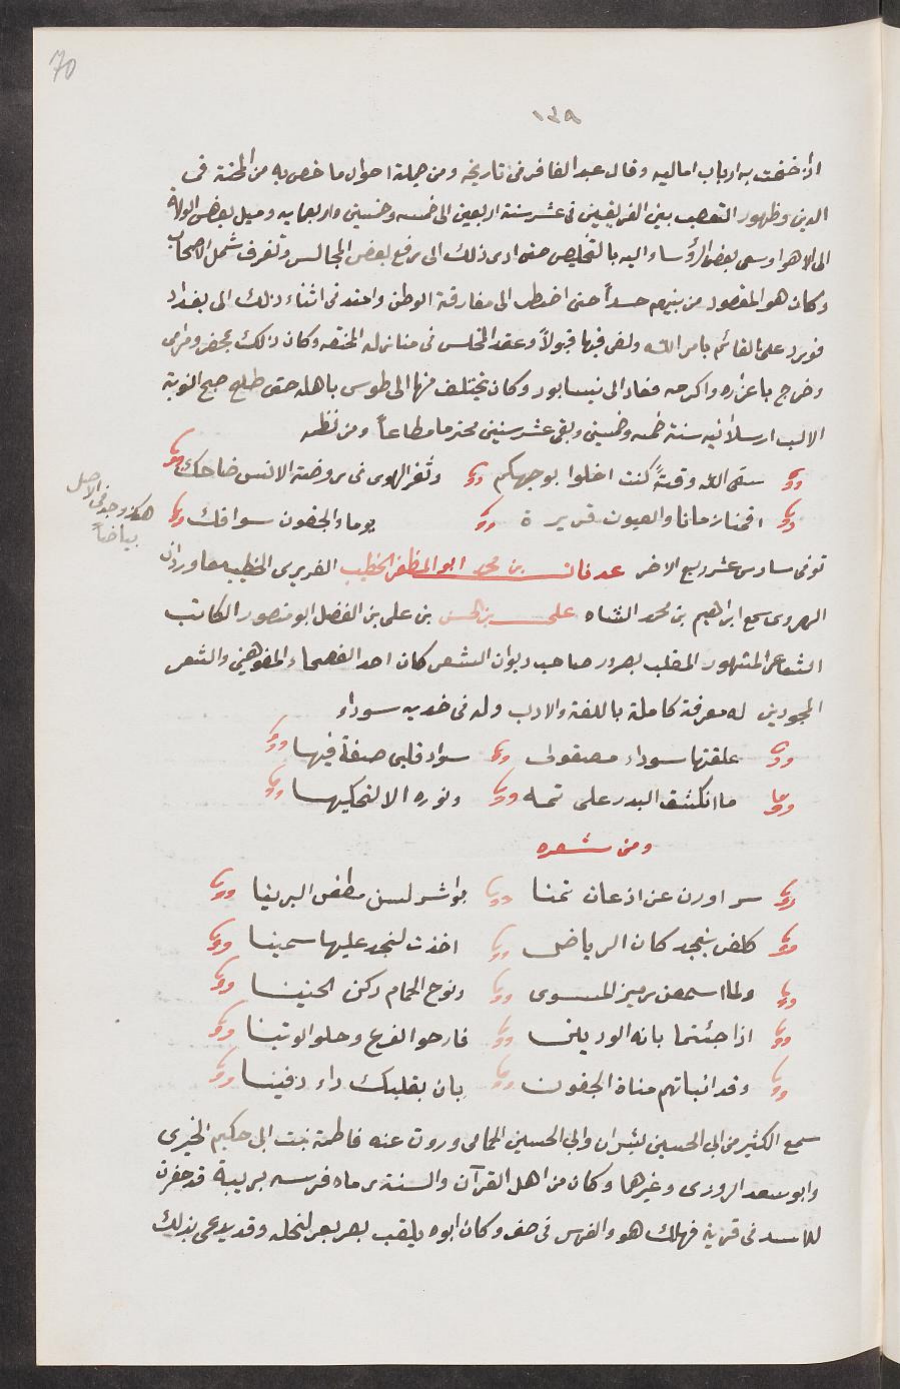 70
١٣٩
اذ ختمت به ارباب اماليه وقال عبد الغافر فى تاريخه ومن جملة احوال ما خص به من المحنة فى
الدين وظهور التعصب بين الفريقين فى عشر سنة اربعين الى خمسه وخمسين واربعمايه وميل بعض الولاة
الى الاهوا وسعى بعض الرؤساء اليه بالتخليص حتى ادى ذلك الى رفع بعض المجالس وتفرق شمل الاصحاب
وكان هو المقصود من بينهم حسداً حتى اضطر الى مفارقة الوطن وامتد فى اثناء ذلك الى بغداد
فورد على القائم بامر الله ولقى فيها قبولاً وعقد المجلس فى منازله المختصه وكان ذلك بمحضر ومراى
وخرج باعزازه واكرامه فعاد الى نيسابور وكان يختلف منها الى طوس باهله حتى طلع صبح النوبة
الالب ارسلانيه سنة خمسه وخمسين وبقى عشر سنين محترما مطاعاً ومن نظمه
سقى الله وقتاً كنت اخلوا بوجهكم وثغر الهوى فى روضة الانس ضاحك
اقمنا زمانا والعيون قريرة يوما والجفون سوافك
هكذا وجد فى الاصل
بياضاً
توفى سادس عشر ربيع الاخر عدنان بن محمد ابو المظفر الخطيب العزيرى الخطيب
الهروى سمع ابراهيم بن محمد الشاه على بن الحسن بن على بن الفضل ابو منصور الكاتب
الشاعر المشهور الملقب بصردر صاحب ديوان الشعر كان احد الفصحاء المفوهين والشعر
المجودين له معرفة كاملة باللغة والادب وله فى خديه سوداء
علقتها سوداء مصقولة سواد قلبى صفة فيها
ما انكسف البدر على تمه ونوره الا لتحكيها
ومن شعره
عن اذعان تمنا
كلفن بنجد كان الرياض اخذت لنجد عليها سمينا
ولما اسمعن ونوح الحمام تركن الحنينا
اذا جئتما بانة الواديين فارحو الفرع وحلو الوتينا
وقد انباتهم مناة الجفون بان بقلبك داء دفينا
سمع الكثير من ابى الحسين بشران وابى الحسين الحمامى وروت عنه فاطمة بنت ابى حكيم الخبرى
وابو سعد الزوزنى وغيرهما وكان من اهل القرآن والسنة رماه فرسه بزبية قد حفرت
للاسد فى قرية فهلك هو والفرس فى صفر وكان ابوه يلقب بصربعر لبخله وقد يدعى بذلك